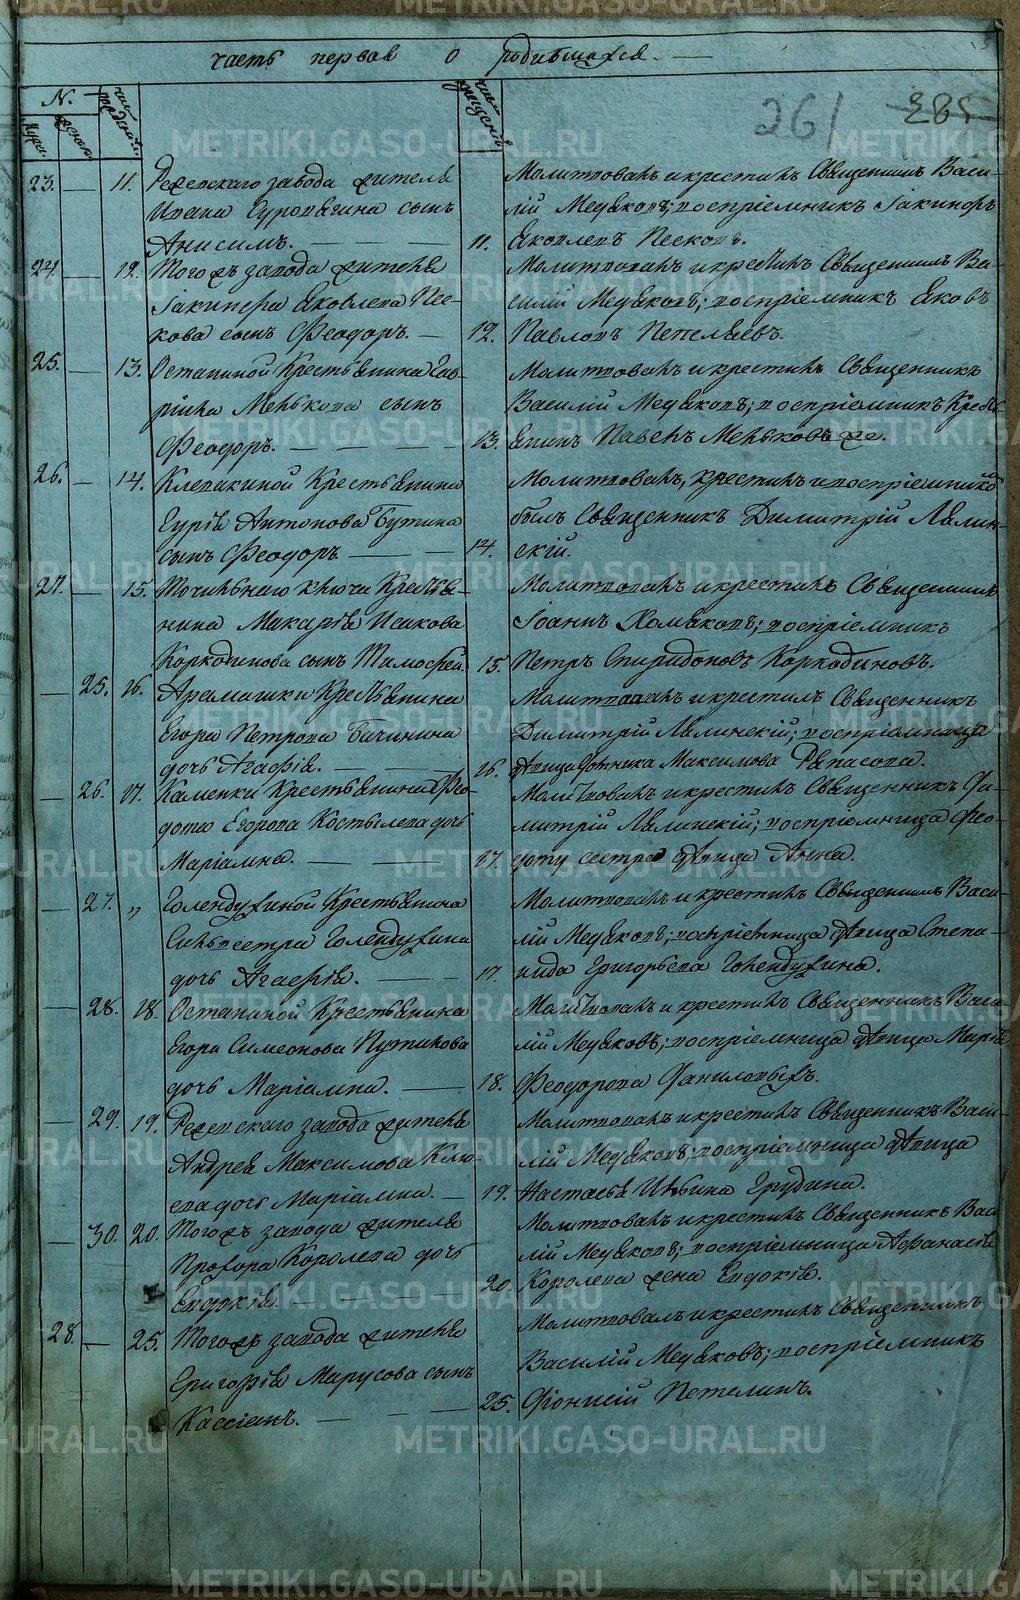 часть первая о родившихся.
261 285
N.
23. — 11. Режевскаго завода жителя
Ивана сынъ
Анисимъ. — — —
Молитвовалъ и крестилъ Священникъ Васи-
лій Медяковъ; воспріемникъ Іакинфъ
11. Яковлевъ Песковъ.
24. — 12. Тогожъ завода жителя
Іакинфа Яковлева Пес-
кова сынъ Феодоръ. —
Молитвовалъ и крестилъ Священникъ Ва-
силій Медяковъ; воспріемникъ Яковъ
12. Павловъ Пепеляевъ.
25. — 13. Останиной Крестьянина Гав-
ріила Мелькова сынъ
Феодоръ. — — —
Молитвовалъ и крестилъ Священникъ
Василій Медяковъ; воспріемникъ Кресть-
13. янинъ Павелъ Мельковъ же.
26. — 14. Клевакиной Крестьянина
Гурія Антонова Бутина
сынъ Феодоръ — —
Молитвовалъ, крестилъ и воспріемникомъ
былъ Священникъ Димитрій Лялин-
14. скій.
27. — 15. Точильнаго ключа Крестья-
нина Макарія Исакова
Коркодинова сынъ Тимофей.
Молитвовалъ и крестилъ Священникъ
Іоаннъ Хомяковъ; воспріемникъ
15. Петръ Спиридоновъ Коркодиновъ.
— 25. 16. Арамашки Крестьянина
Егора Петрова Бачинина
дочь Агафія. — — —
Молитвовалъ и крестилъ Священникъ
Димитрій Лялинскій; воспріемница
16. дѣвица Максимова
— 26. 17. Каменки Крестьянина Фео-
дота Егорова Костылева дочь
Маріамна. — — —
Молитвовалъ и крестилъ Священникъ Ди-
митрій Лялинскій; воспріемница Фео-
17. доту сестра дѣвица Анна.
— 27. „ Голендухиной Крестьянина
Сильвестра Голендухина
дочь Агафія. — —
Молитвовалъ и крестилъ Священникъ Васи-
лій Медяковъ; воспріемница дѣвица Степа-
17. нида Григорьева Голендухина.
— 28. 18. Останиной Крестьянина
Егора Симеонова Путилова
дочь Маріамна. — —
Молитвовалъ и крестилъ Священникъ Васи-
лій Медяковъ; воспріемница дѣвица Марія
18. Феодорова Даниловыхъ.
— 29. 19. Режевскаго завода жителя
Андрея Максимова Клю-
ева дочь Маріамна. —
Молитвовалъ и крестилъ Священникъ Васи-
лій Медяковъ; воспріемница дѣвица
19. Настасья Ильина
— 30. 20. Тогожъ завода жителя
Прохора Королева дочь
Евдокія. — — —
Молитвовалъ и крестилъ Священникъ Васи-
лій Медяковъ; воспріемница Афанасія
20. Королева жена Евдокія.
28. — 25. Тогожъ завода жителя
Григорія Марусова сынъ
Кассіанъ. — — —
Молитвовалъ и крестилъ Священникъ
Василій Медяковъ; воспріемникъ
25. Діонисій Петелинъ.
METRIKI.GASO-URAL.RU